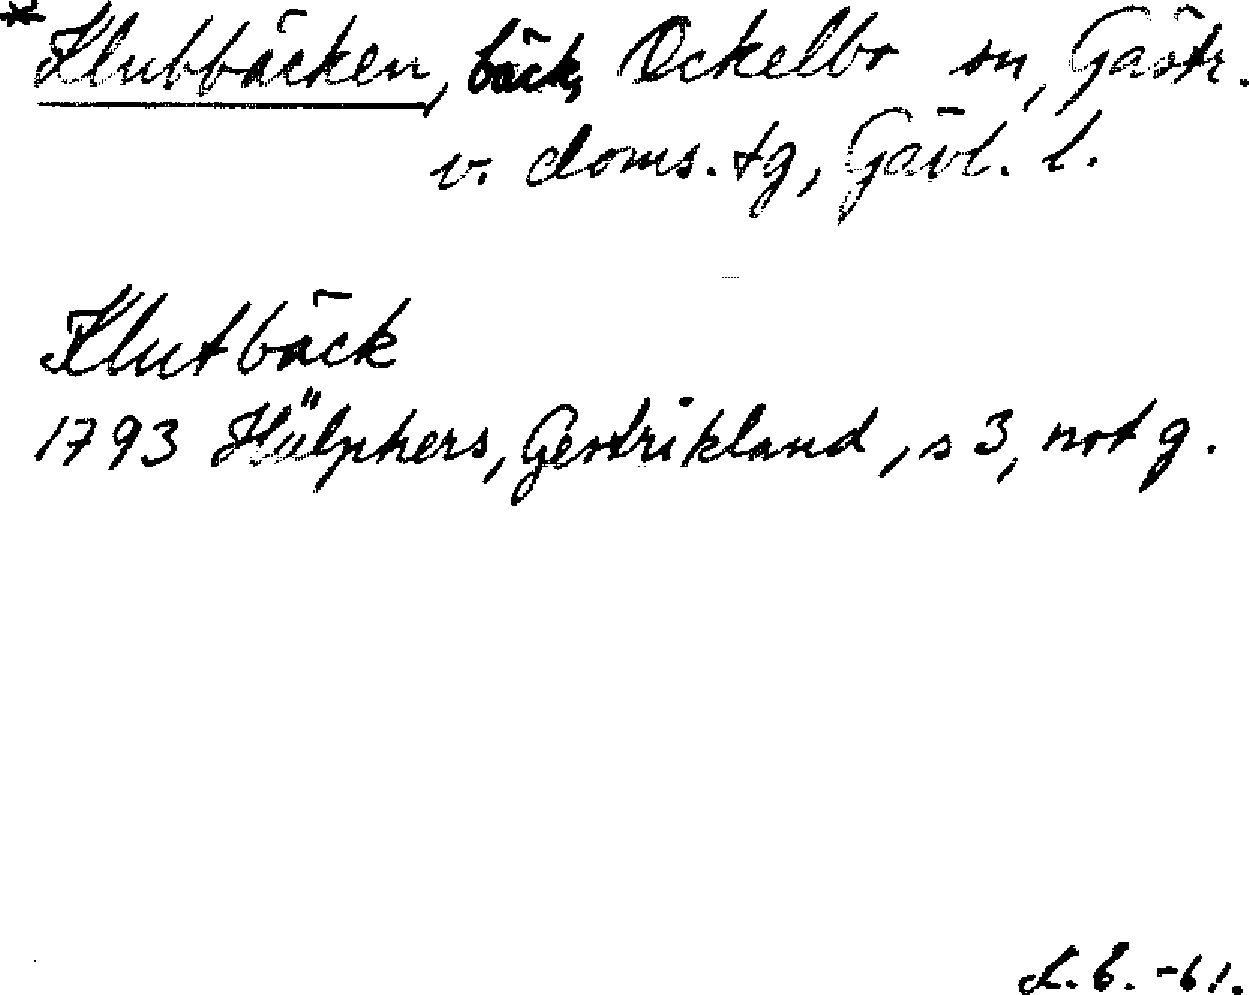 *Klubbäcken, bäck, Ockelbo sn, Gästr.
v. doms. tg, Gävl. l.
Klutbäck
1793 Hülphers, Gestrikland, s 3, not g.
L.B. -61.